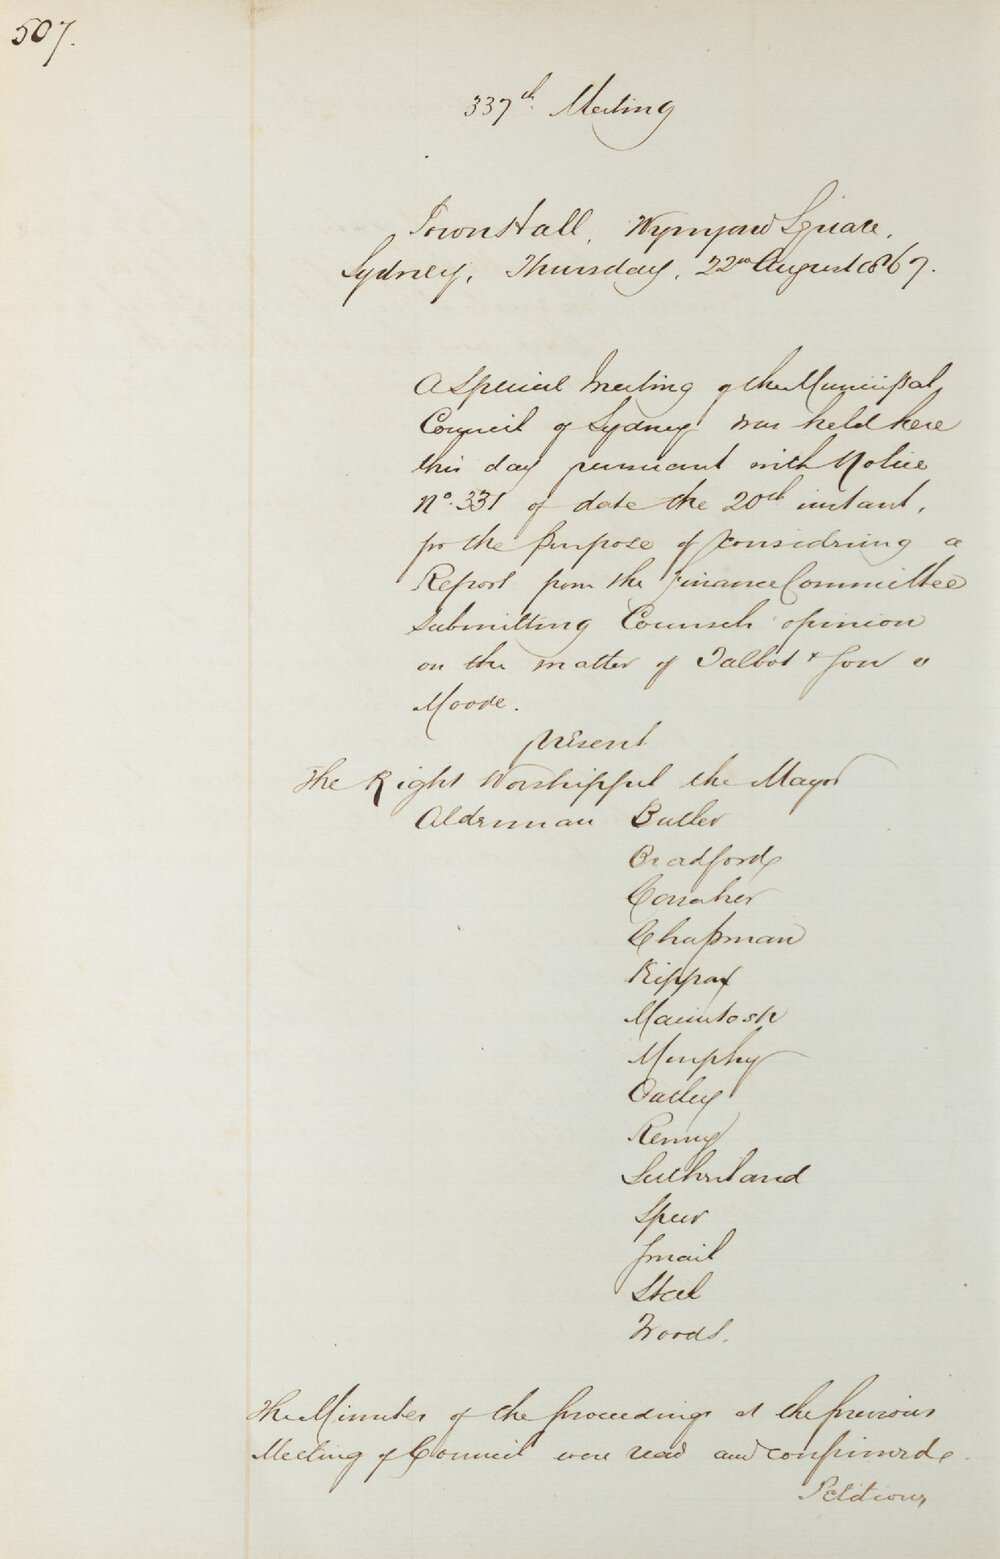 507.
337th Meeting
Town Hall, Wynyard Square,
Sydney, Thursday, 22nd August 1867.
A Special Meeting of the Municipal
Council of Sydney was held here
this day pursuant with Notice
No. 331 of date the 20th instant,
for the purpose of considering a
Report from the Finance Committee
submitting Counsels opinion
on the matter of Talbot & Son v
Moore.
Present
The Right Worshipful the Mayor
Alderman Butler
Bradford
Conaher
Chapman
Kippax
Macintosh
Murphy
Oatley
Renny
Sutherland
Speer
Smail
Steel
Woods.
The Minutes of the proceedings at the previous
Meeting of Council were read and confirmed.
Petitions